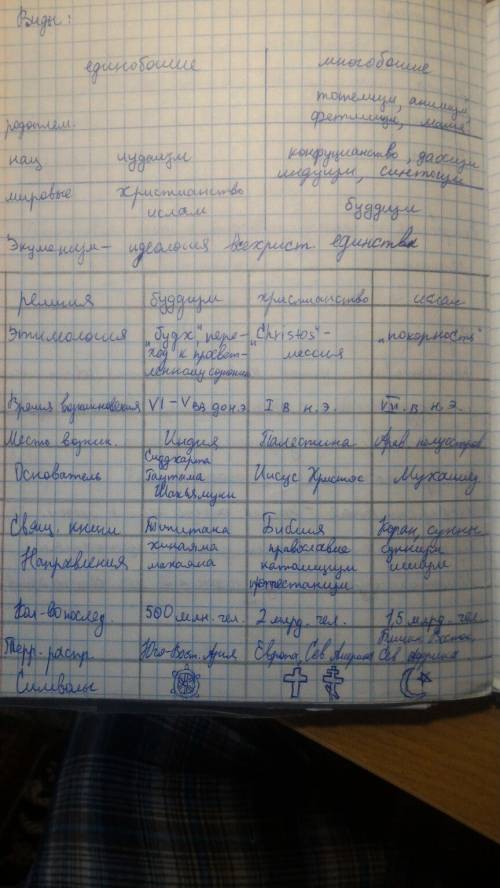 Виды:
единобошие многобошие
тотемизм, анимизм,
родоплем. фетишизм, магия
нац иудаизм конфуцианство, даосизм
индуизм, синтоизм
мировые христианство
ислам буддизм
Экуменизм — идеология всехрист. единства
религия буддизм христианство ислам
Этимология „будх" пере- „Christos" - „покорность"
ход к просвет- мессия
ленному состоянию
Время возникновения VI – V вв до н.э. I в н. э. VII в н. э.
Место возник. Индия Палестина Арав. полуостров
Основатель Сиддхарта Иисус Христос Мухаммед
Гаутама
Шакьямуни
Свящ. книги Типитака Библия Коран, сунны
Направления хинаяма православие суннизм
махаяма католицизм шиизм
протестанизм
Кол-во послед. 500 млн. чел. 2 млрд. чел. 1,5 млрд. чел.
Терр. распр Юго-Вост. Азия Европа, Сев Америка Ближн. Восток
Сев Африка
Символы